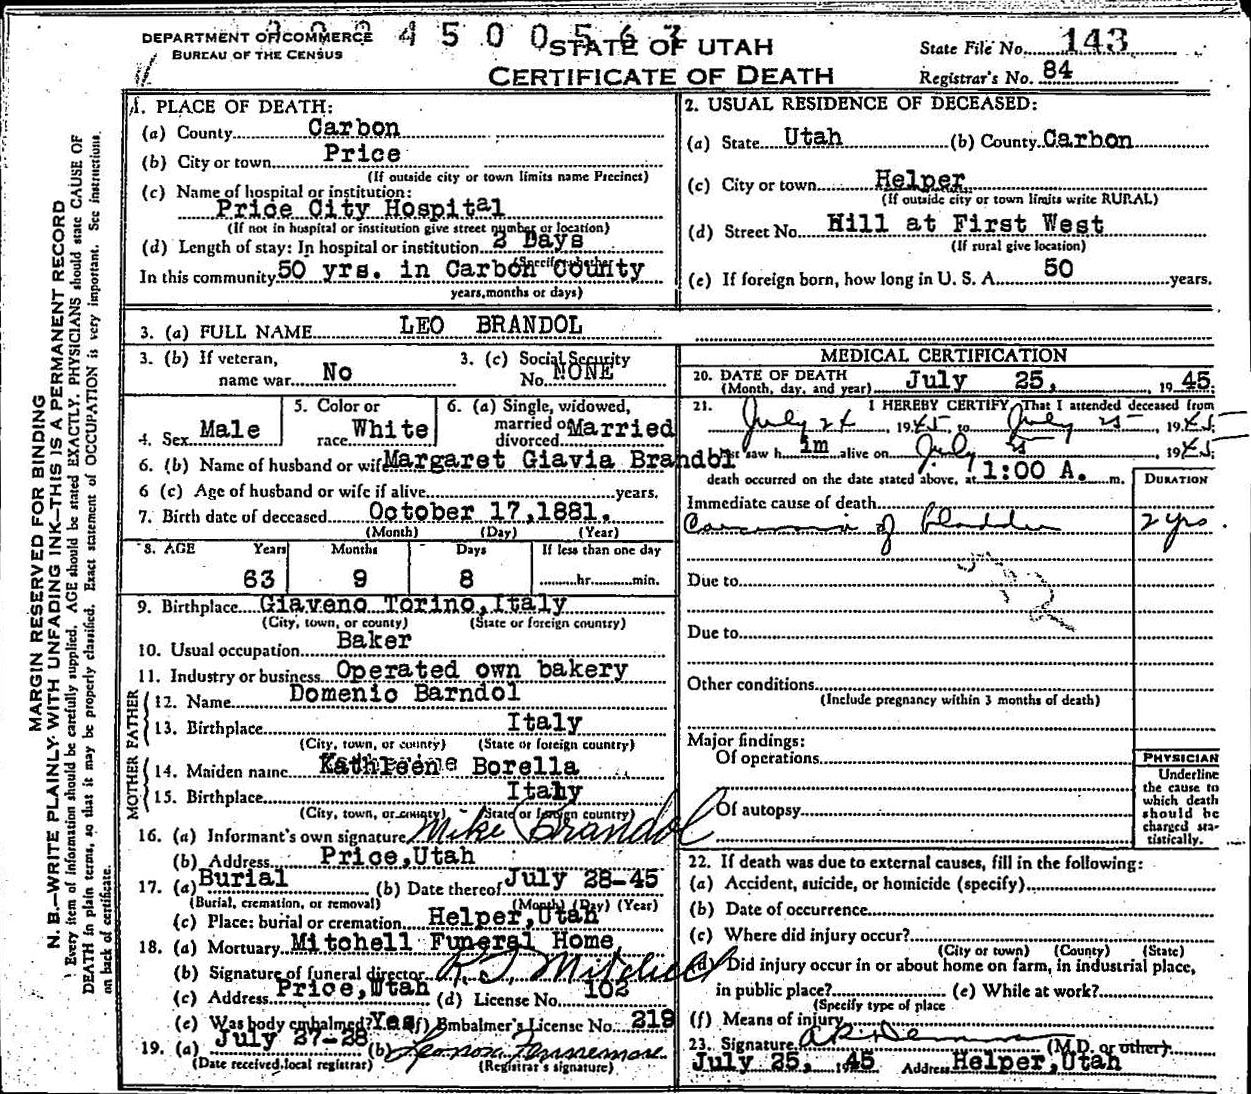 DEPARTMENT OF COMMERCE
BUREAU OF THE CENSUS
4500563
STATE OF UTAH
CERTIFICATE OF DEATH
State File No. 143
Registrar's No. 84
MARGIN RESERVED FOR BINDING
N. B.—WRITE PLAINLY, WITH UNFADING INK—THIS IS A PERMANENT RECORD
Every item of information should be carefully supplied. AGE should be stated EXACTLY. PHYSICIANS should state CAUSE OF
DEATH in plain terms, so that it may be properly classified. Exact statement of OCCUPATION is very important. See instructions
on back of certificate.
1. PLACE OF DEATH:
(a) County Carbon
(b) City or town Price
(If outside city or town limits name Precinct)
(c) Name of hospital or institution:
Price City Hospital
(If not in hospital or institution give street number or location)
(d) Length of stay: In hospital or institution 2 Days
(Specify whether
In this community 50 yrs. in Carbon County
years, months or days)
2. USUAL RESIDENCE OF DECEASED:
(a) State Utah (b) County Carbon
(c) City or town Helper
(If outside city or town limits write RURAL)
(d) Street No. Hill at First West
(If rural give location)
(e) If foreign born, how long in U. S. A. 50 years.
3. (a) FULL NAME LEO BRANDOL
3. (b) If veteran, name war No
3. (c) Social Security No. NONE
4. Sex Male
5. Color or race White
6. (a) Single, widowed, married or divorced Married
6. (b) Name of husband or wife Margaret Giavia Brandol
6 (c) Age of husband or wife if alive years.
7. Birth date of deceased October 17, 1881.
(Month) (Day) (Year)
8. AGE Years Months Days If less than one day
63 9 8 hr. min.
9. Birthplace Giaveno Torino, Italy
(City, town, or county) (State or foreign country)
10. Usual occupation Baker
11. Industry or business Operated own bakery
FATHER
12. Name Domenic Barndol
13. Birthplace Italy
(City, town, or county) (State or foreign country)
MOTHER
14. Maiden name Kathleene Borella
15. Birthplace Italy
(City, town, or county) (State or foreign country)
16. (a) Informant's own signature Mike Brandol
(b) Address Price, Utah
17. (a) Burial (b) Date thereof July 28-45
(Burial, cremation, or removal) (Month) (Day) (Year)
(c) Place: burial or cremation Helper, Utah
18. (a) Mortuary Mitchell Funeral Home
(b) Signature of funeral director R. J. Mitchell
(c) Address Price, Utah (d) License No. 102
(e) Was body embalmed? Yes (f) Embalmer's License No. 219
19. (a) July 27-28 (b)
(Date received local registrar) (Registrar's signature)
MEDICAL CERTIFICATION
20. DATE OF DEATH
(Month, day, and year) July 25, 1945.
21. I HEREBY CERTIFY, That I attended deceased from
July 24, 1945, to July 25, 1945;
last saw him alive on July 25, 1945;
death occurred on the date stated above, at 1:00 A. m.
DURATION
Immediate cause of death
Carcinoma of bladder 2 yrs.
Due to
Due to
Other conditions
(Include pregnancy within 3 months of death)
Major findings:
Of operations
Of autopsy
PHYSICIAN
Underline
the cause to
which death
should be
charged sta-
tistically.
22. If death was due to external causes, fill in the following:
(a) Accident, suicide, or homicide (specify)
(b) Date of occurrence
(c) Where did injury occur?
(City or town) (County) (State)
(d) Did injury occur in or about home on farm, in industrial place,
in public place? (e) While at work?
(Specify type of place
(f) Means of injury
23. Signature (M.D. or other)
July 25, 1945 Address Helper, Utah